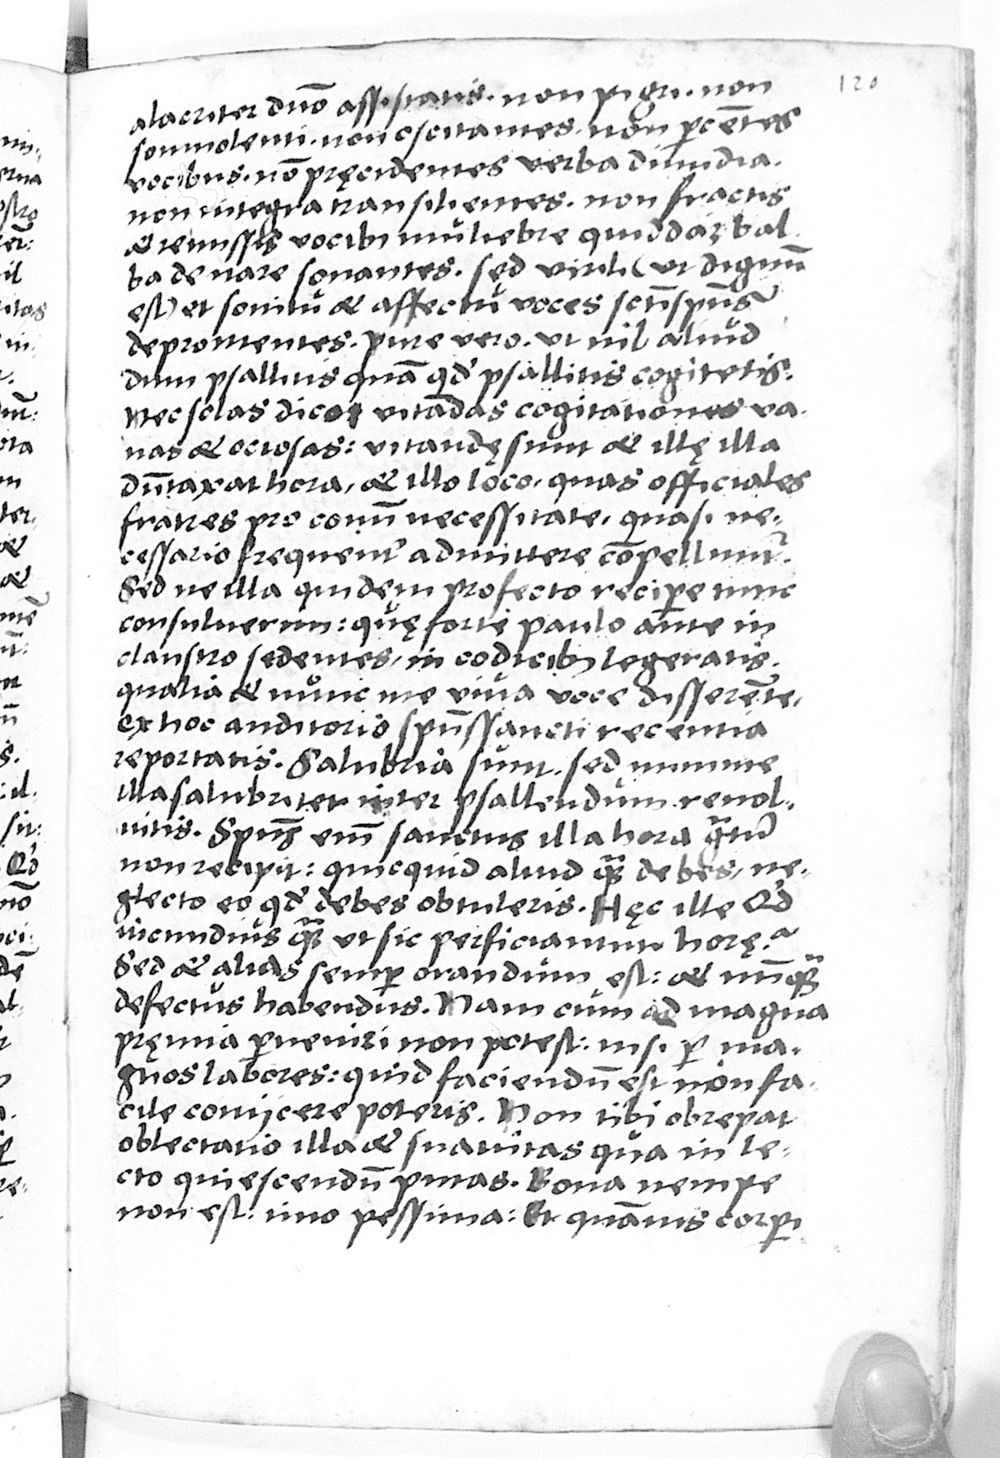 120
alacriter dn̄o assistatis. non pigri. non
somnolenti. non oscitantes. non ꝑcẽtes
vocibus. nõ pręcidentes verba dimidia.
non integra transilientes. non fractis
& remissis vocibꝫ muliebre quiddã bal
ba de nare sonantes. sed virili (ut dignum̄
est) et sonitu & affectu voces sc̄tispūs
depromentes. pure vero. ut nil aliud
dum psallitis quã qd̓ psallitis cogitetis.
Nec solas dico vitãdas cogitationes va-
nas & ociosas: vitandę sunt & illę illa
dūtaxat hora, & illo loco, quas officiales
fratres pro comūi necessitate, quasi ne-
cessario frequent̓ admittere cõpellunt̓.
Sed ne illa quidem profecto recipe tunc
consuluerim: quę forte paulo ante in
claustro sedentes, in codicibꝫ legeratis.
qualia & nunc me viva voce disserẽte,
ex hoc auditorio spūssancti recentia
reportatis. Salubria sunt. sed minime
illa salubriter inter psallendum revol-
vitis. Spūs em̄ sanctus illa hora gratū
non recipit: quicquid aliud qꝫ debes, ne-
glecto eo qd̓ debes obtuleris. Hęc ille Qd̓
iucundius qꝫ ut sic perficiantur horę.
Sed & alias semꝑ orandum est: & nūqꝫ
defectus habendus. Nam cum ad magna
pręmia ꝑveniri non potest: nisi ꝑ ma-
gnos labores: quid faciendū est non fa-
cile coniicere poteris. Non tibi obrepat
oblectatio illa & suavitas qua in le-
cto quiescendū putas. Bona nempe
non est: imo pessima: Et quãvis corꝑi